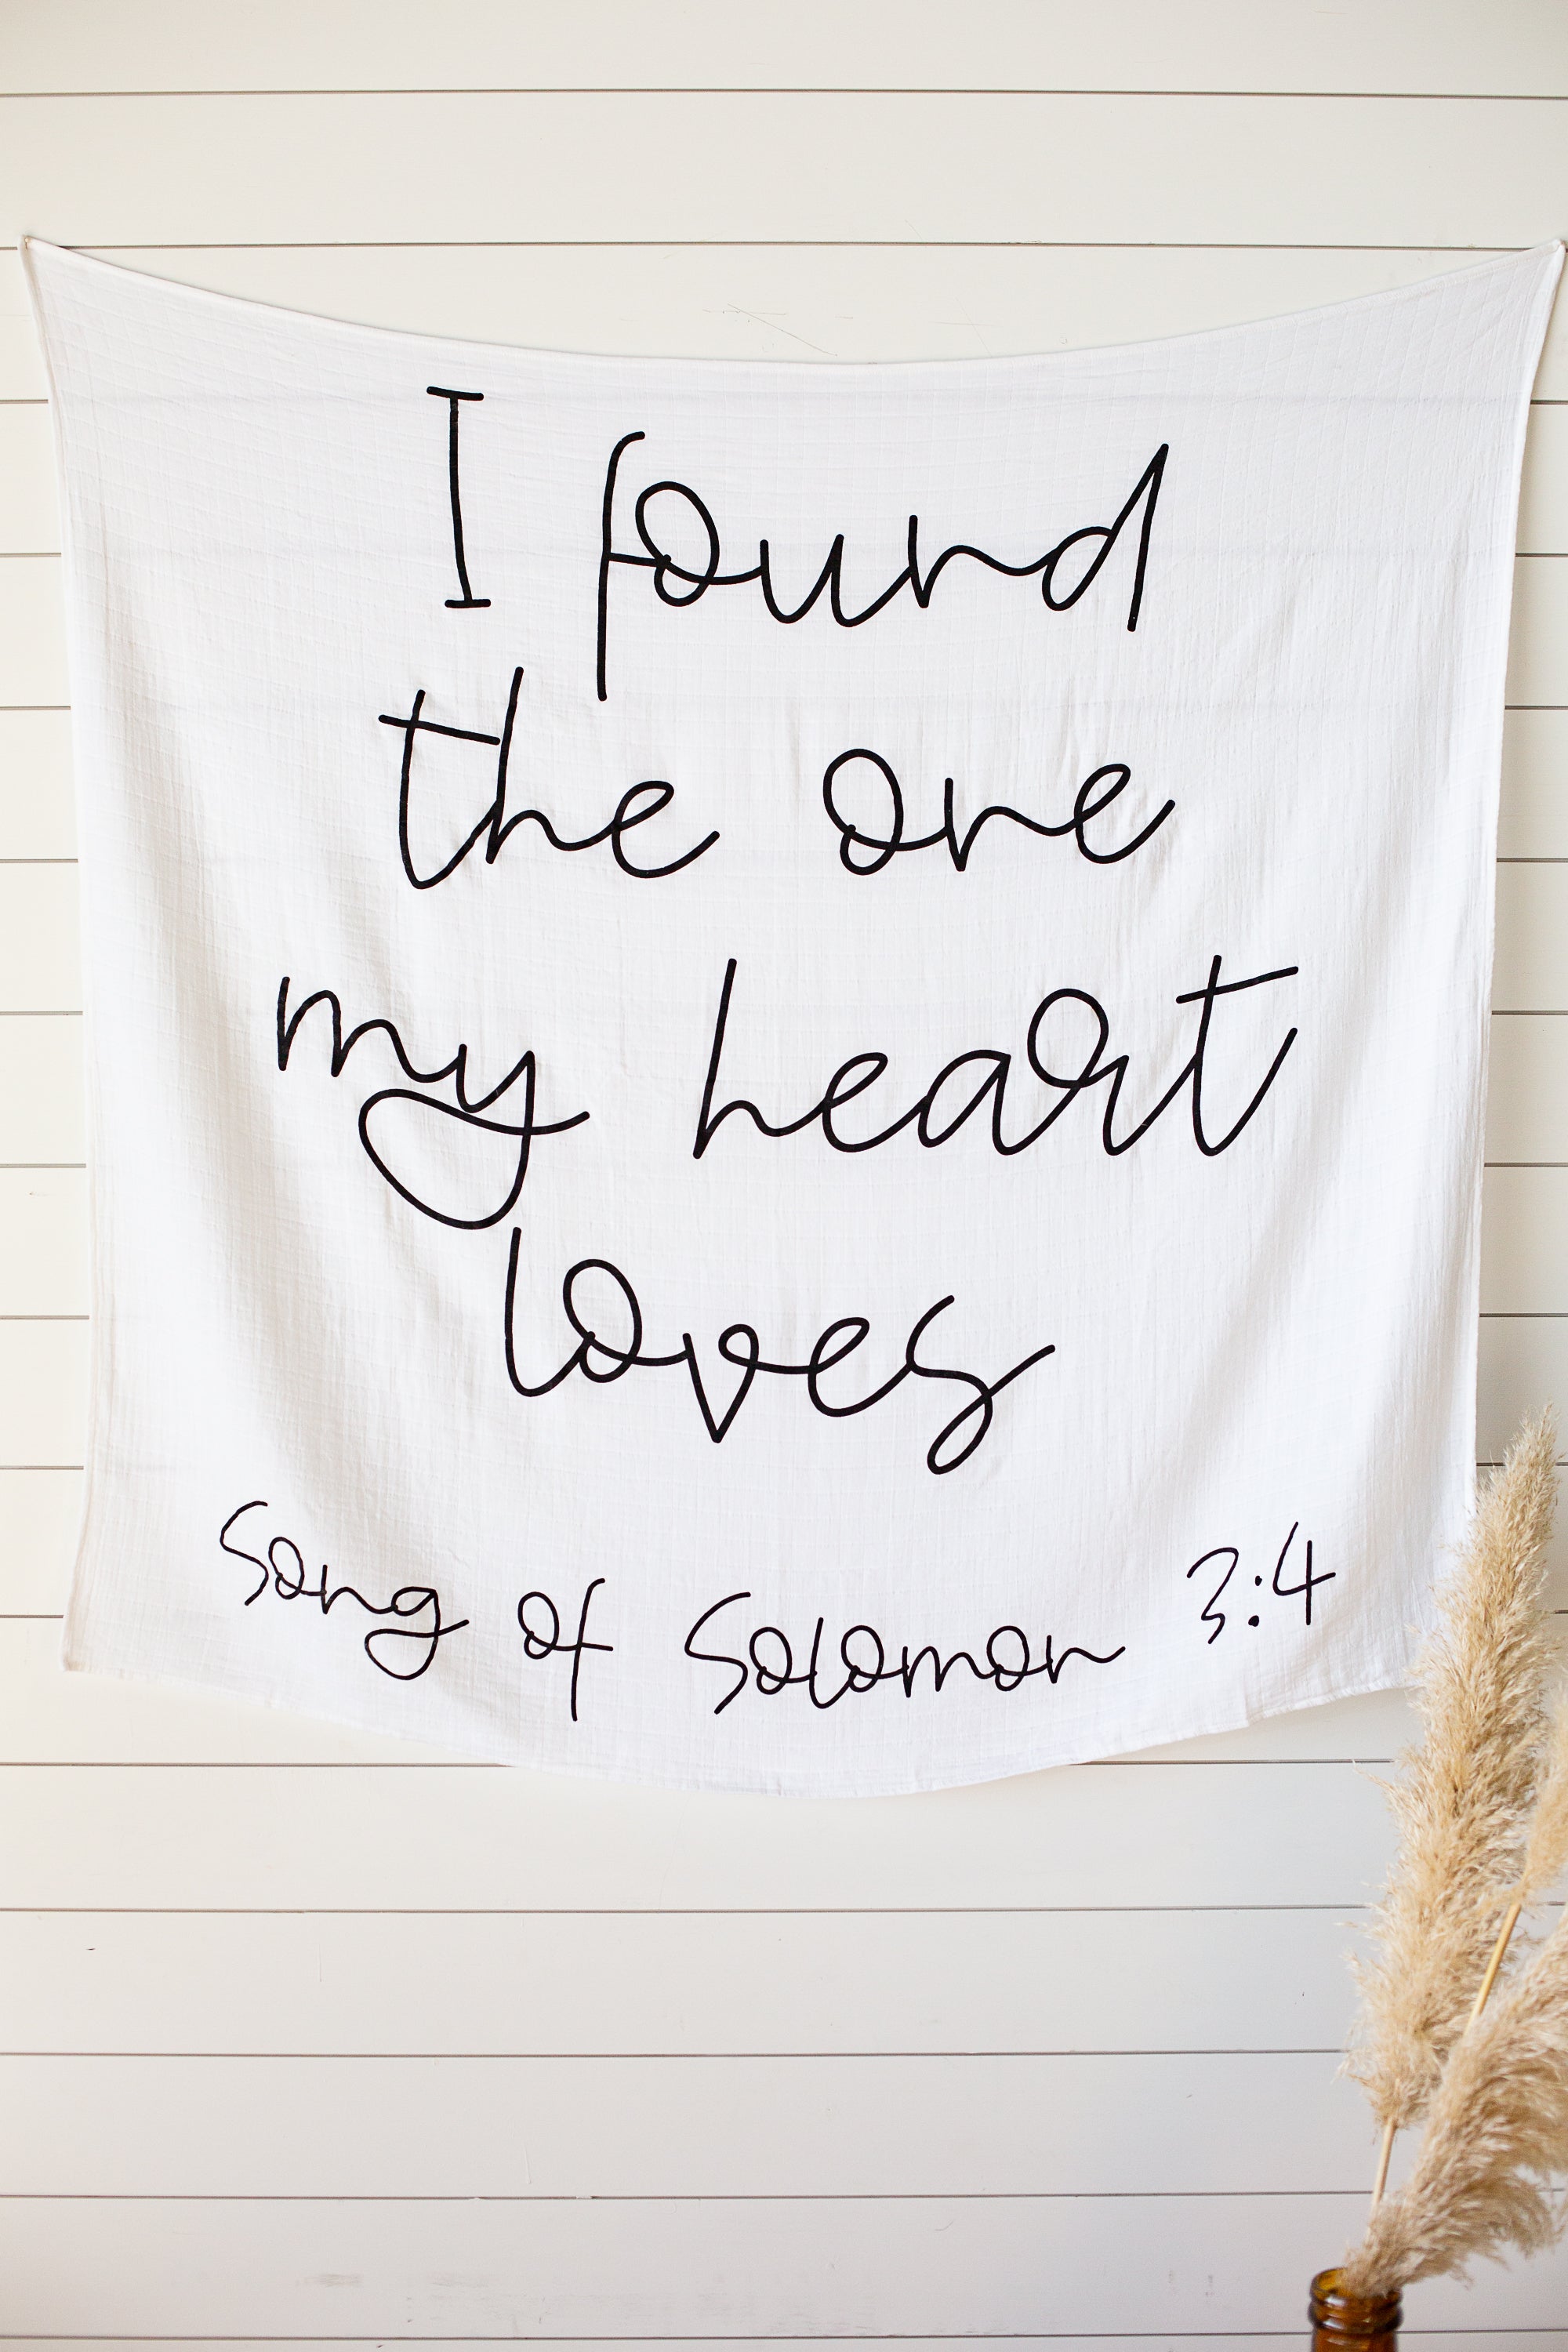 I found
the one
my heart
loves
Song of Solomon 3:4